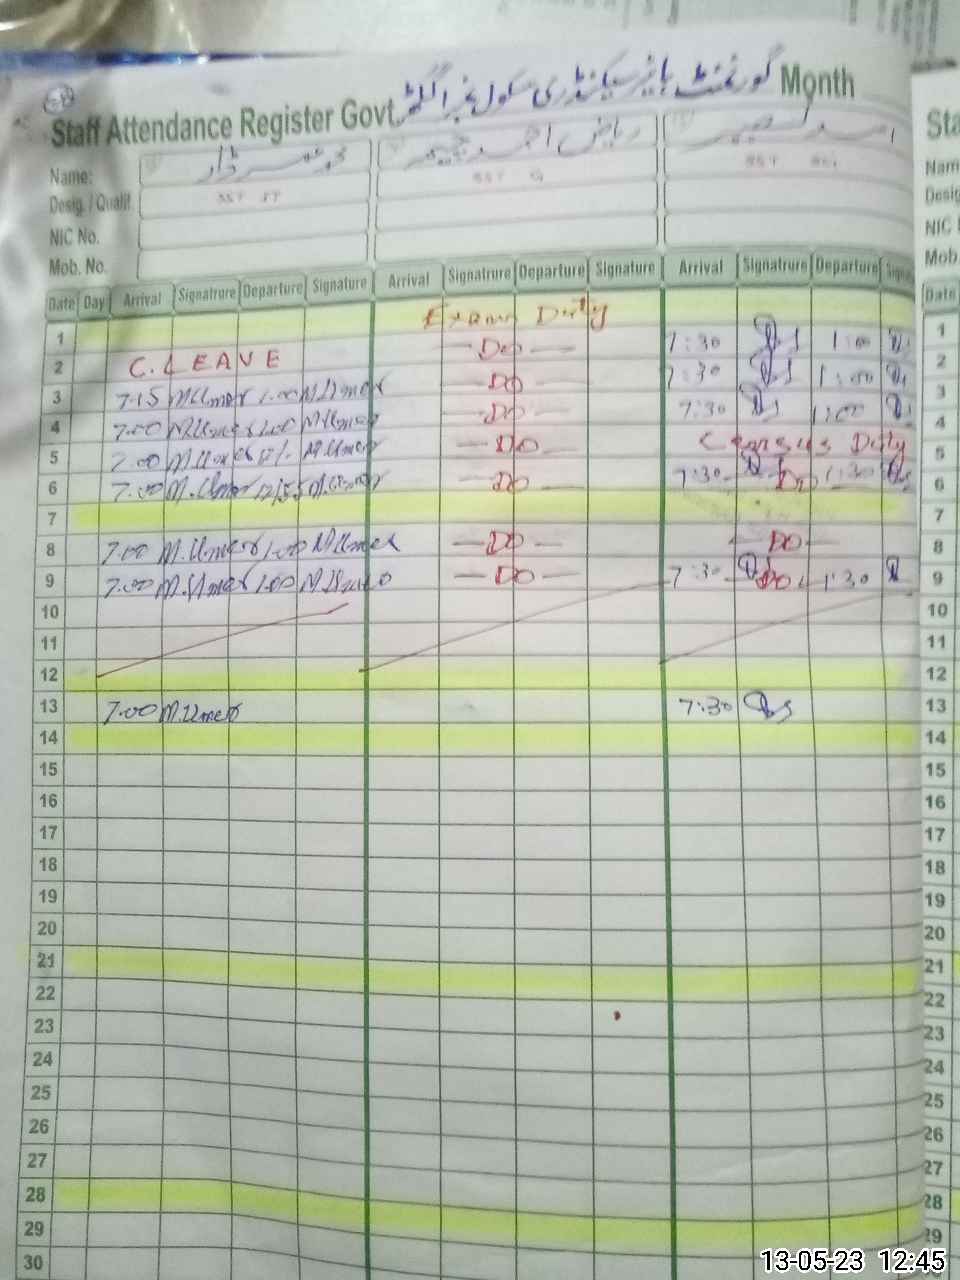 Staff Attendance Register Govt گورنمنٹ ہائیر سیکنڈری سکول Month
Name:
Desig. / Qualif. SST SST G SST
NIC No.
Mob. No.
Date Day Arrival Signatrure Departure Signature Arrival Signatrure Departure Signature Arrival Signatrure Departure
1 Exam Duty 1
2 C. LEAVE — Do — 7:30 1:00 2
3 7.15 M Umer 1.00 M Umer — Do — 7:30 1:00 3
4 7.00 M Umer 1.00 M Umer — Do — 7:30 1:00 4
5 7.00 M Umer M Umer — Do — Census Duty 5
6 7.00 M. Umer 12/55 M. Umer — Do — 7:30 — Do — 1:30 6
7 7
8 7.00 M. Umer 1.00 M Umer — Do — — Do — 8
9 7.00 M. Umer 1.00 — Do — 7:30 Do 1:30 9
10 10
11 11
12 12
13 7.00 M. Umer 7:30 13
14 14
15 15
16 16
17 17
18 18
19 19
20 20
21 21
22 22
23 23
24 24
25 25
26 26
27 27
28 28
29 29
30
Sta
Nam
Desig
NIC
Mob.
Date
13-05-23 12:45